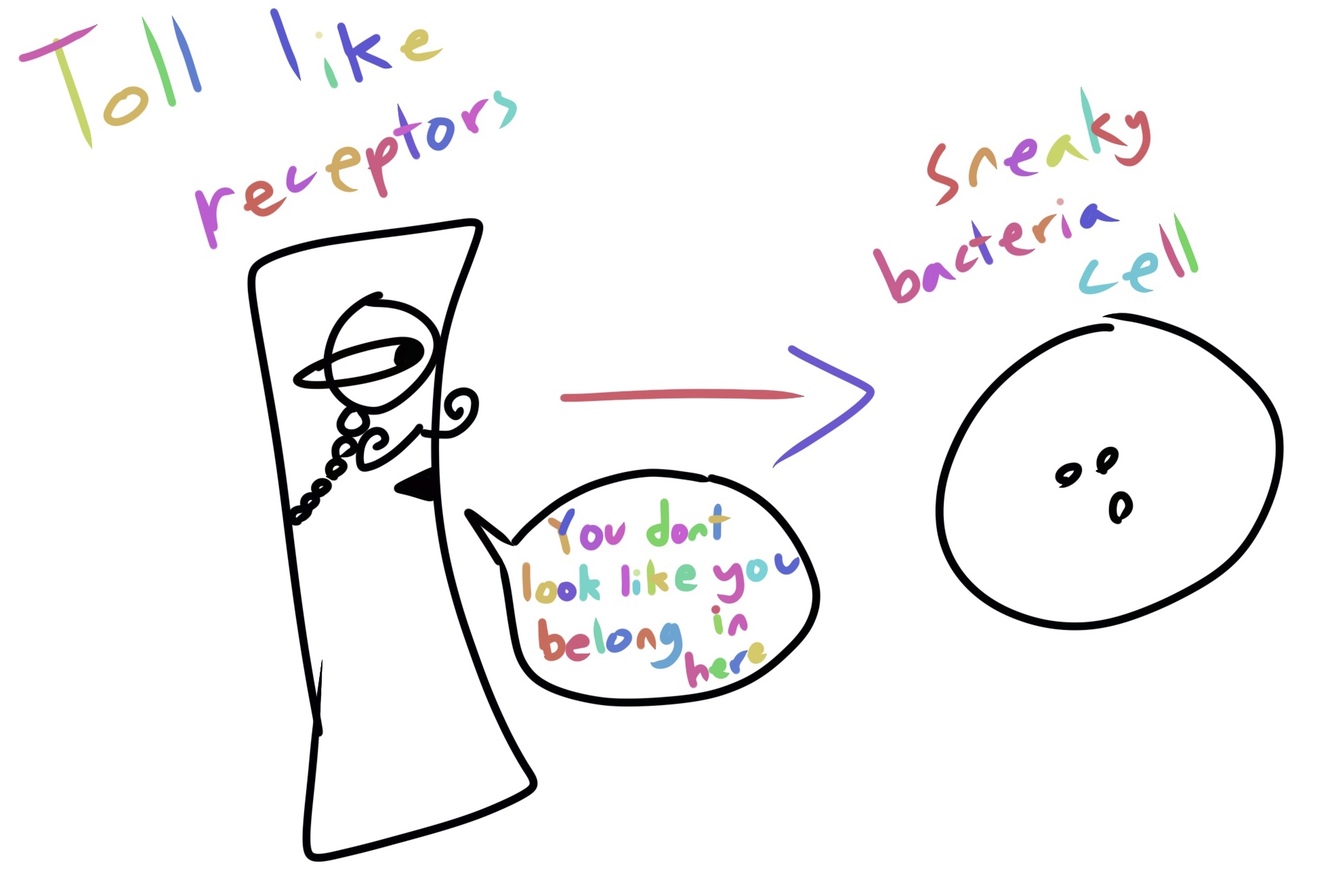 Toll like
receptors
Sneaky
bacteria
cell
You dont
look like you
belong in
here